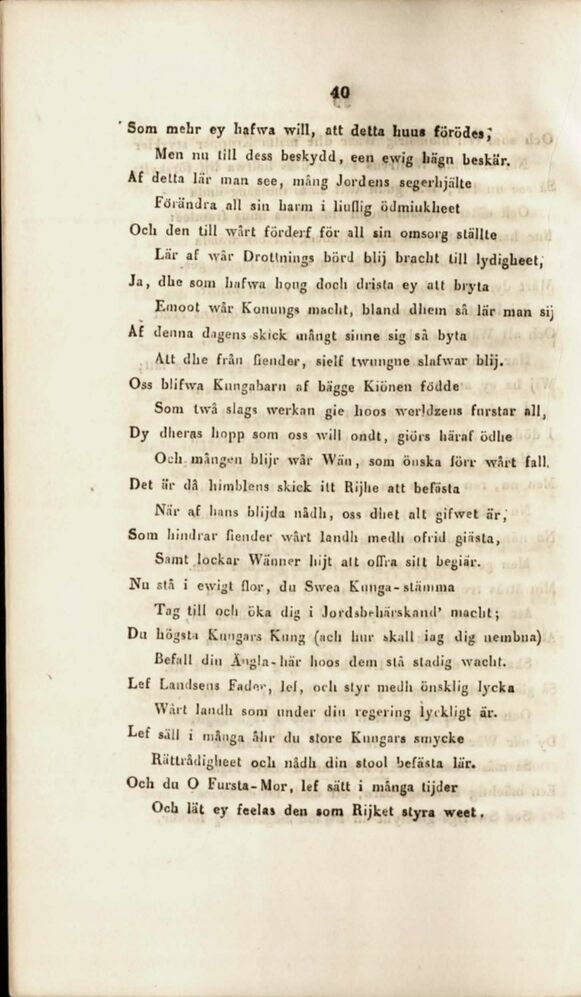 40
Som mehr ey hafwa will, att detta huus förödes;
Men nu till dess beskydd, een ewig hägn beskär.
Af detta lär man see, mång Jordens segerhjälte
Förändra all sin harm i liuflig ödmiukheet
Och den till wårt förderf för all sin omsorg ställte
Lär af wår Drottnings börd blij bracht till lydigheet,
Ja, dhe som hafwa hong doch drista ey att bryta
Emoot wår Konungs macht, bland dhem så lär man sij
Af denna dagens skick mångt sinne sig så byta
Att dhe från fiender, sielf twungne slafwar blij.
Oss blifwa Kungabarn af bägge Kiönen födde
Som twå slags werkan gie hoos werldzens furstar all,
Dy dheras hopp som oss will ondt, giörs häraf ödhe
Och mången blijr wår Wän, som önska förr wårt fall.
Det är då himblens skick itt Rijhe att befästa
När af hans blijda nådh, oss dhet alt gifwet är,
Som hindrar fiender wårt landh medh ofrid giästa,
Samt lockar Wänner hijt att offra sitt begiär.
Nu stå i ewigt flor, du Swea Kunga-stämma
Tag till och öka dig i Jordsbehärskand' macht;
Du högsta Kungars Kung (ach hur skall iag dig nembna)
Befall din Ängla-här hoos dem stå stadig wacht.
Lef Landsens Fader, lef, och styr medh önsklig lycka
Wårt landh som under din regering lyckligt är.
Lef säll i många åhr du store Kungars smycke
Rättrådigheet och nådh din stool befästa lär.
Och du O Fursta-Mor, lef sätt i många tijder
Och lät ey feelas den som Rijket styra weet.